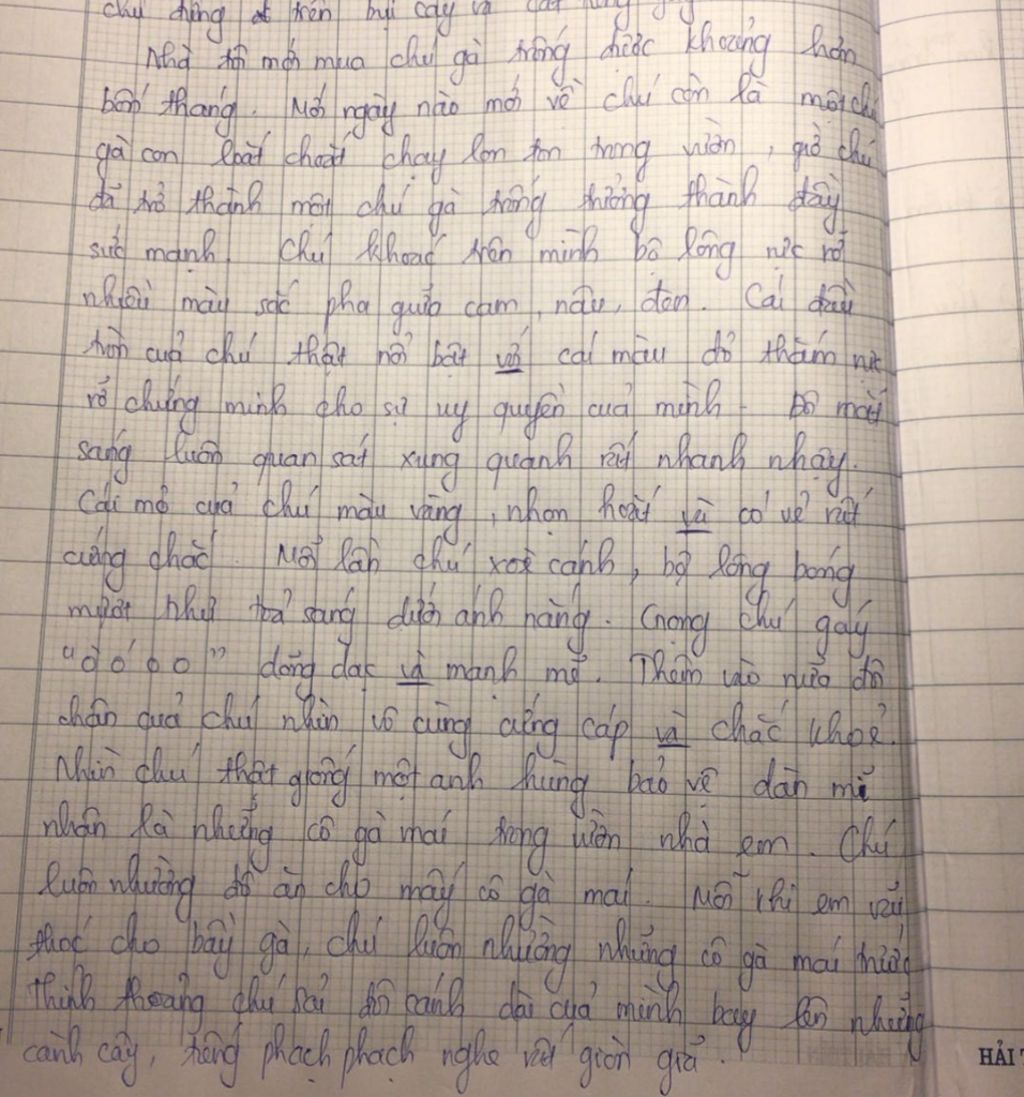 chú đứng trên bụi cây và cất
Nhà tôi mới mua chú gà trống được khoảng hơn
bốn tháng. Mới ngày nào mới về chú còn là một chú
gà con loắt choắt chạy lon ton trong vườn, giờ chú
đã trở thành một chú gà trống trưởng thành đầy
sức mạnh. Chú khoác trên mình bộ lông rực rỡ
nhiều màu sắc pha giữa cam, nâu, đen. Cái đầu
tròn của chú thật nổi bật với cái màu đỏ thắm rực
rỡ chứng minh cho sự uy quyền của mình. Đôi mắt
sáng luôn quan sát xung quanh rất nhanh nhạy.
Cái mỏ của chú màu vàng, nhọn hoắt và có vẻ rất
cứng chắc. Mỗi lần chú xoè cánh, bộ lông bóng
mượt như toả sáng dưới ánh nắng. Giọng chú gáy
"ò ó o o" dõng dạc và mạnh mẽ. Thêm vào nữa đôi
chân của chú nhìn vô cùng cứng cáp và chắc khoẻ.
Nhìn chú thật giống một anh hùng bảo vệ dàn mĩ
nhân là những cô gà mái trong vườn nhà em. Chú
luôn nhường đồ ăn cho mấy cô gà mái. Mỗi khi em vãi
thóc cho bầy gà, chú luôn nhường những cô gà mái trước
Thỉnh thoảng chú sải đôi cánh dài của mình bay lên những
cành cây, tiếng phạch phạch nghe rất giòn giã.
HẢI